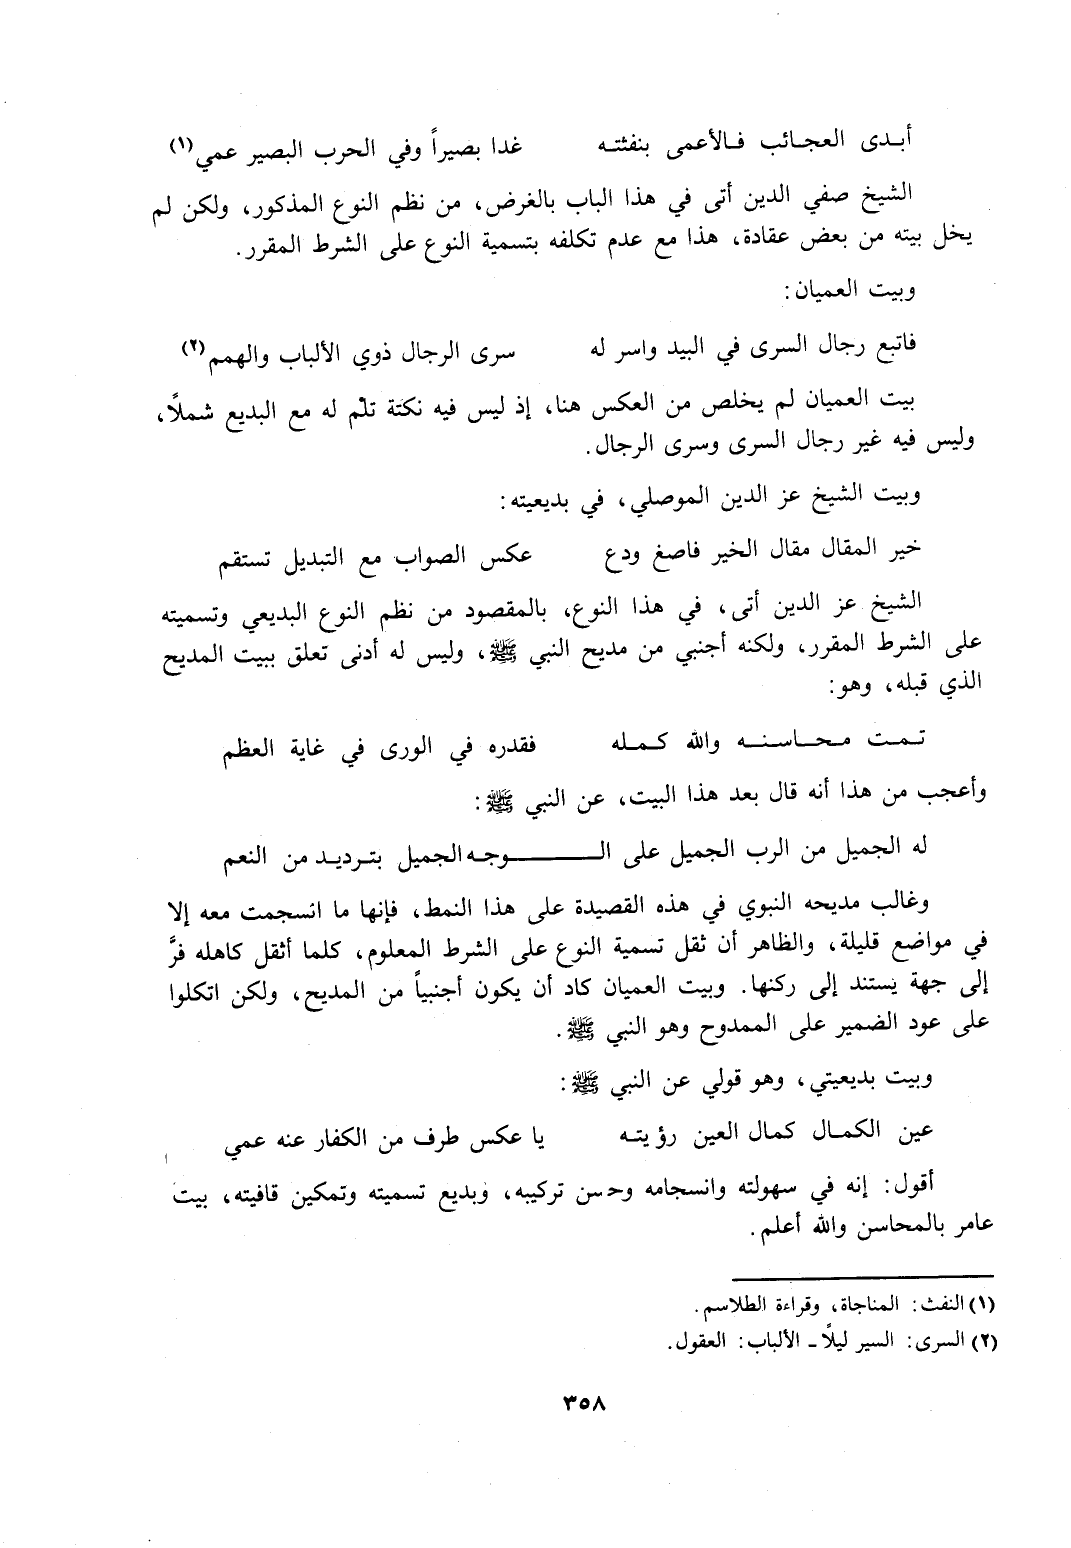 أبـدى العجـائب فـالأعمى بنفثتـه غدا بصيراً وفي الحرب البصير عمي(١)
الشيخ صفي الدين أتى في هذا الباب بالغرض، من نظم النوع المذكور، ولكن لم
يخل بيته من بعض عقادة، هذا مع عدم تكلفه بتسمية النوع على الشرط المقرر.
وبيت العميان:
فاتبع رجال السرى في البيد واسر له سرى الرجال ذوي الألباب والهمم(٢)
بيت العميان لم يخلص من العكس هنا، إذ ليس فيه نكتة تلم له مع البديع شملاً،
وليس فيه غير رجال السرى وسرى الرجال.
وبيت الشيخ عز الدين الموصلي، في بديعيته:
خير المقال مقال الخير فاصغ ودع عكس الصواب مع التبديل تستقم
الشيخ عز الدين أتى، في هذا النوع، بالمقصود من نظم النوع البديعي وتسميته
على الشرط المقرر، ولكنه أجنبي من مديح النبي ﷺ، وليس له أدنى تعلق ببيت المديح
الذي قبله، وهو:
تـمـت محـاسـنـه والله كـمـله فقدره في الورى في غاية العظم
وأعجب من هذا أنه قال بعد هذا البيت، عن النبي ﷺ:
له الجميل من الرب الجميل على الـــــوجـه الجميل بتـرديـد من النعم
وغالب مديحه النبوي في هذه القصيدة على هذا النمط، فإنها ما انسجمت معه إلا
في مواضع قليلة، والظاهر أن ثقل تسمية النوع على الشرط المعلوم، كلما أثقل كاهله فرَّ
إلى جهة يستند إلى ركنها. وبيت العميان كاد أن يكون أجنبياً من المديح، ولكن اتكلوا
على عود الضمير على الممدوح وهو النبي ﷺ.
وبيت بديعيتي، وهو قولي عن النبي ﷺ:
عين الكمـال كمال العين رؤيتـه يا عكس طرف من الكفار عنه عمي
أقول: إنه في سهولته وانسجامه وحسن تركيبه، وبديع تسميته وتمكين قافيته، بيت
عامر بالمحاسن والله أعلم.
(١) النفث: المناجاة، وقراءة الطلاسم.
(٢) السرى: السير ليلاً ـ الألباب: العقول.
٣٥٨